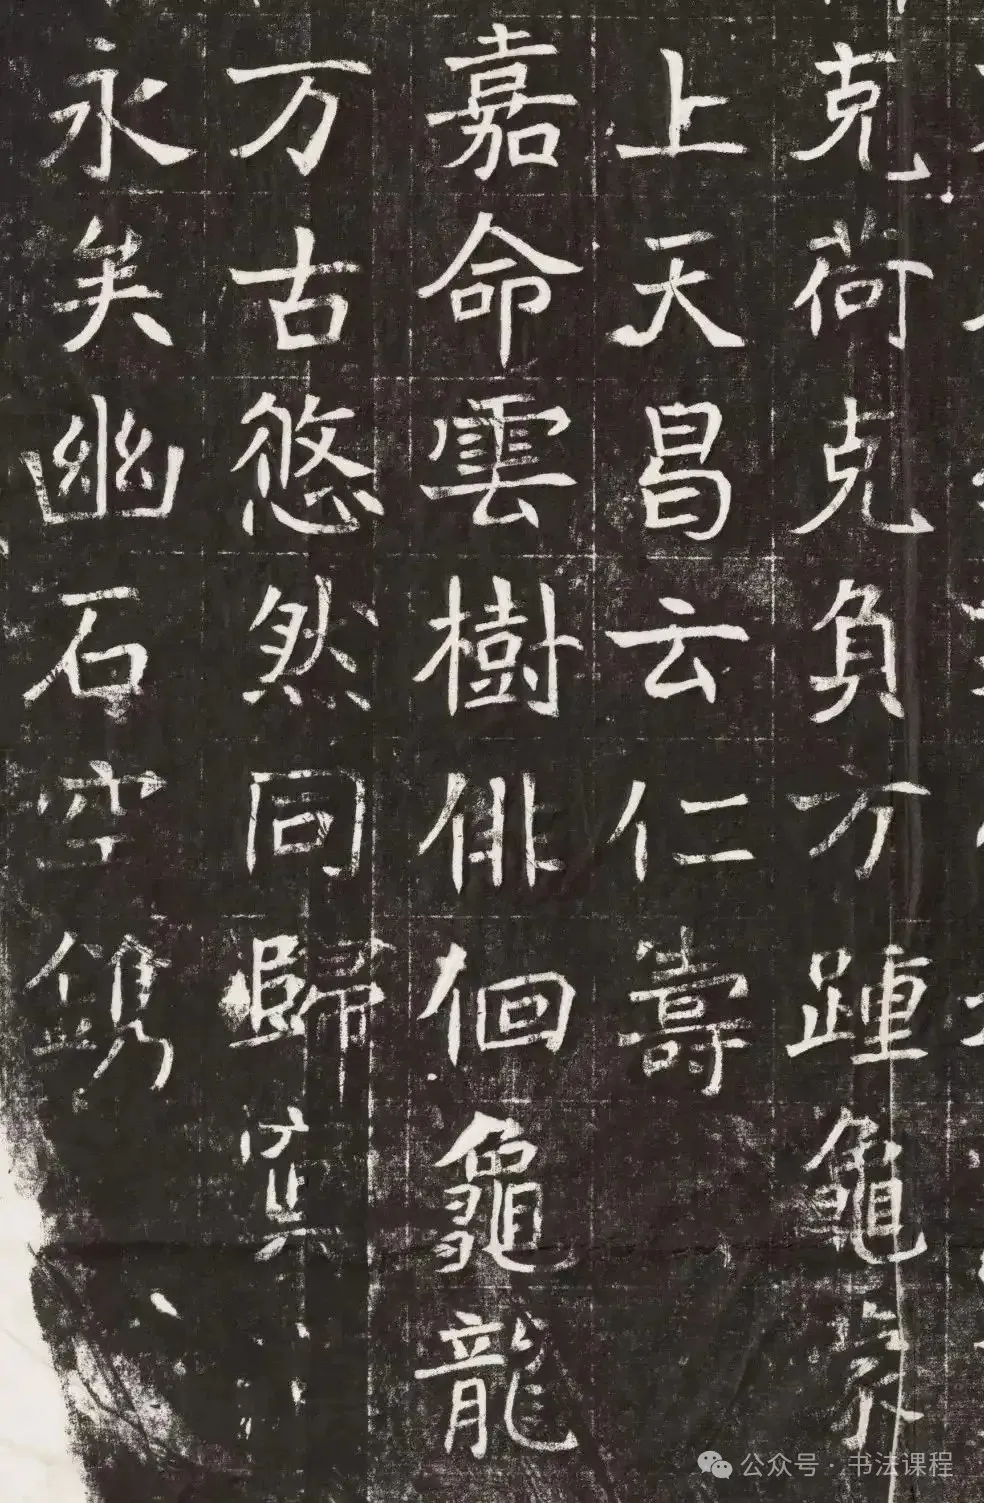 克荷克負方踵龜
上天昌云仁壽
嘉命雲樹俳佪龜龍
万古悠然同歸
永矣幽石空鐫
公众号·书法课程